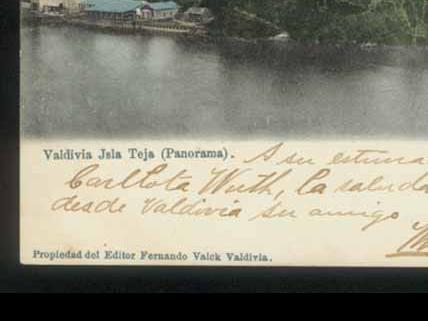 Valdivia Jsla Teja (Panorama). A su estima
Carllota Wuth, la saluda
desde Valdivia su amigo
Propiedad del Editor Fernando Valck Valdivia.